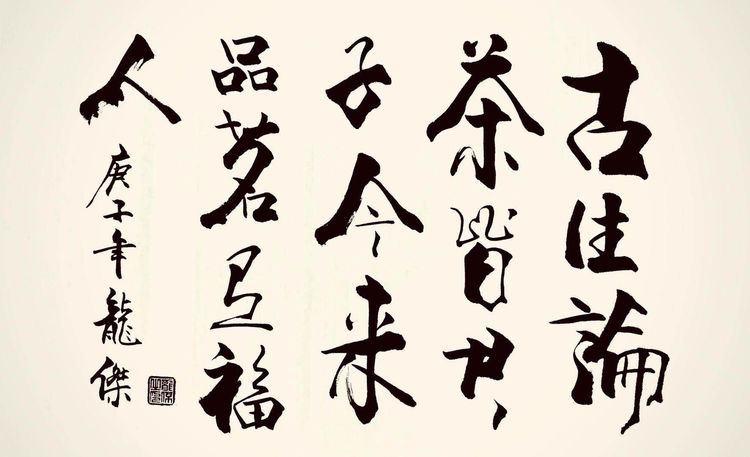 古往論
茶皆君
子今来
品茗是福
人
庚子年龍傑